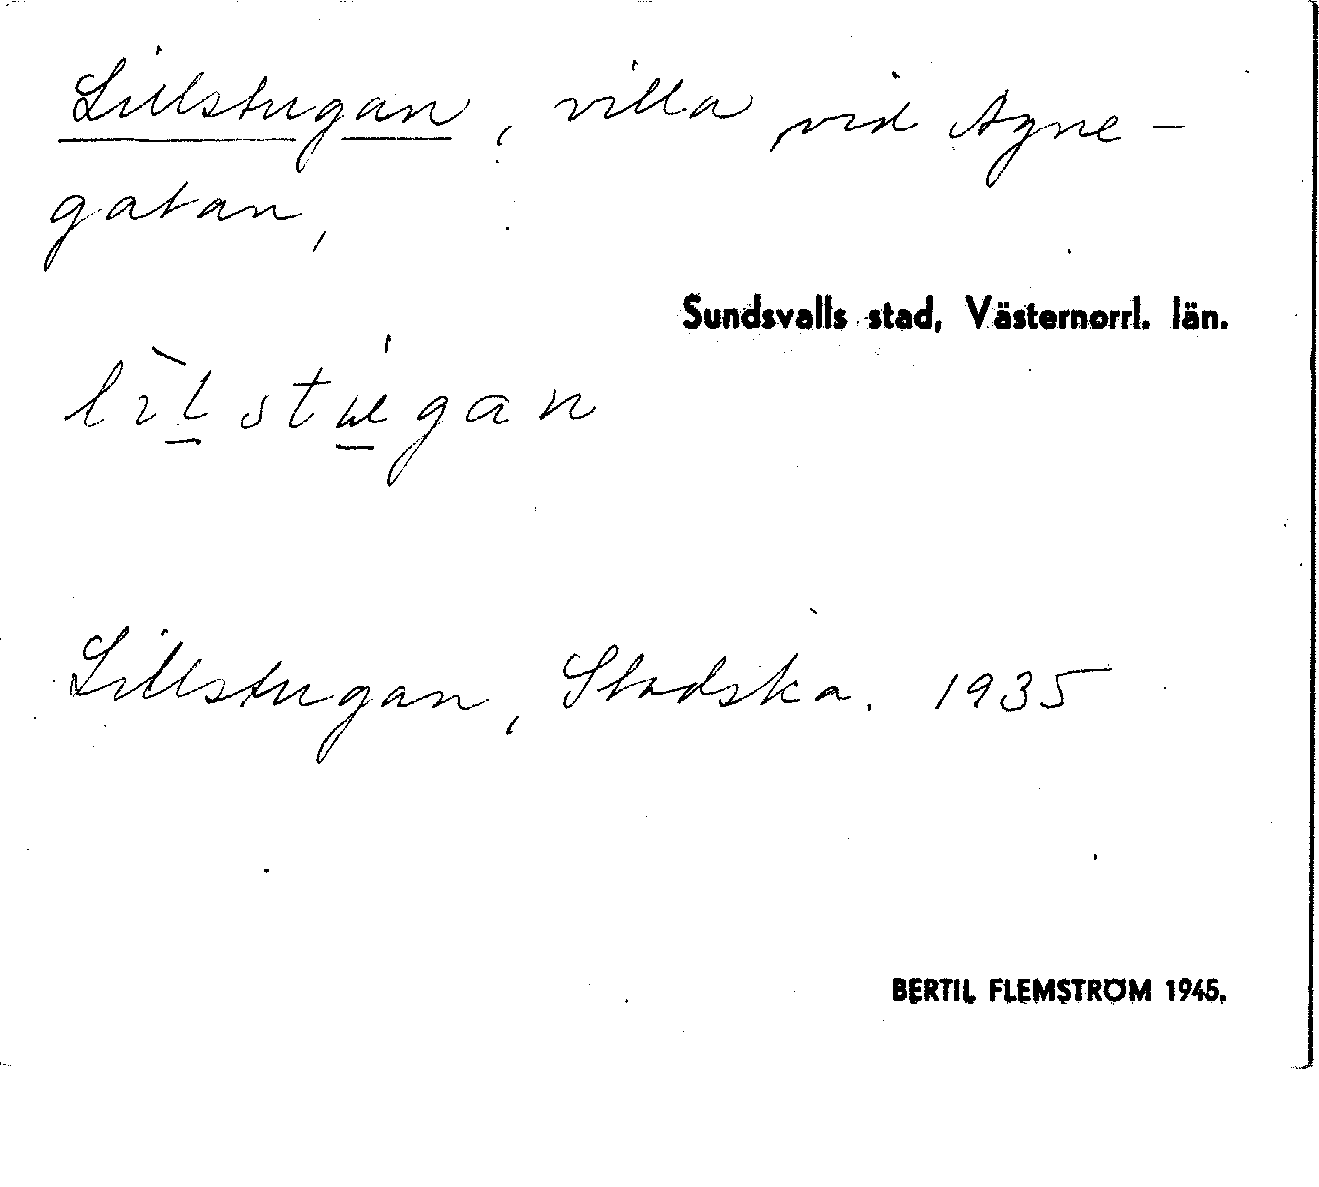 Lillstugan, villa vid Agne-
gatan,
Sundsvalls stad, Västernorrl. län.
lìl̠stú̠gan
Lillstugan, Stadska. 1935
BERTIL FLEMSTRÖM 1945.